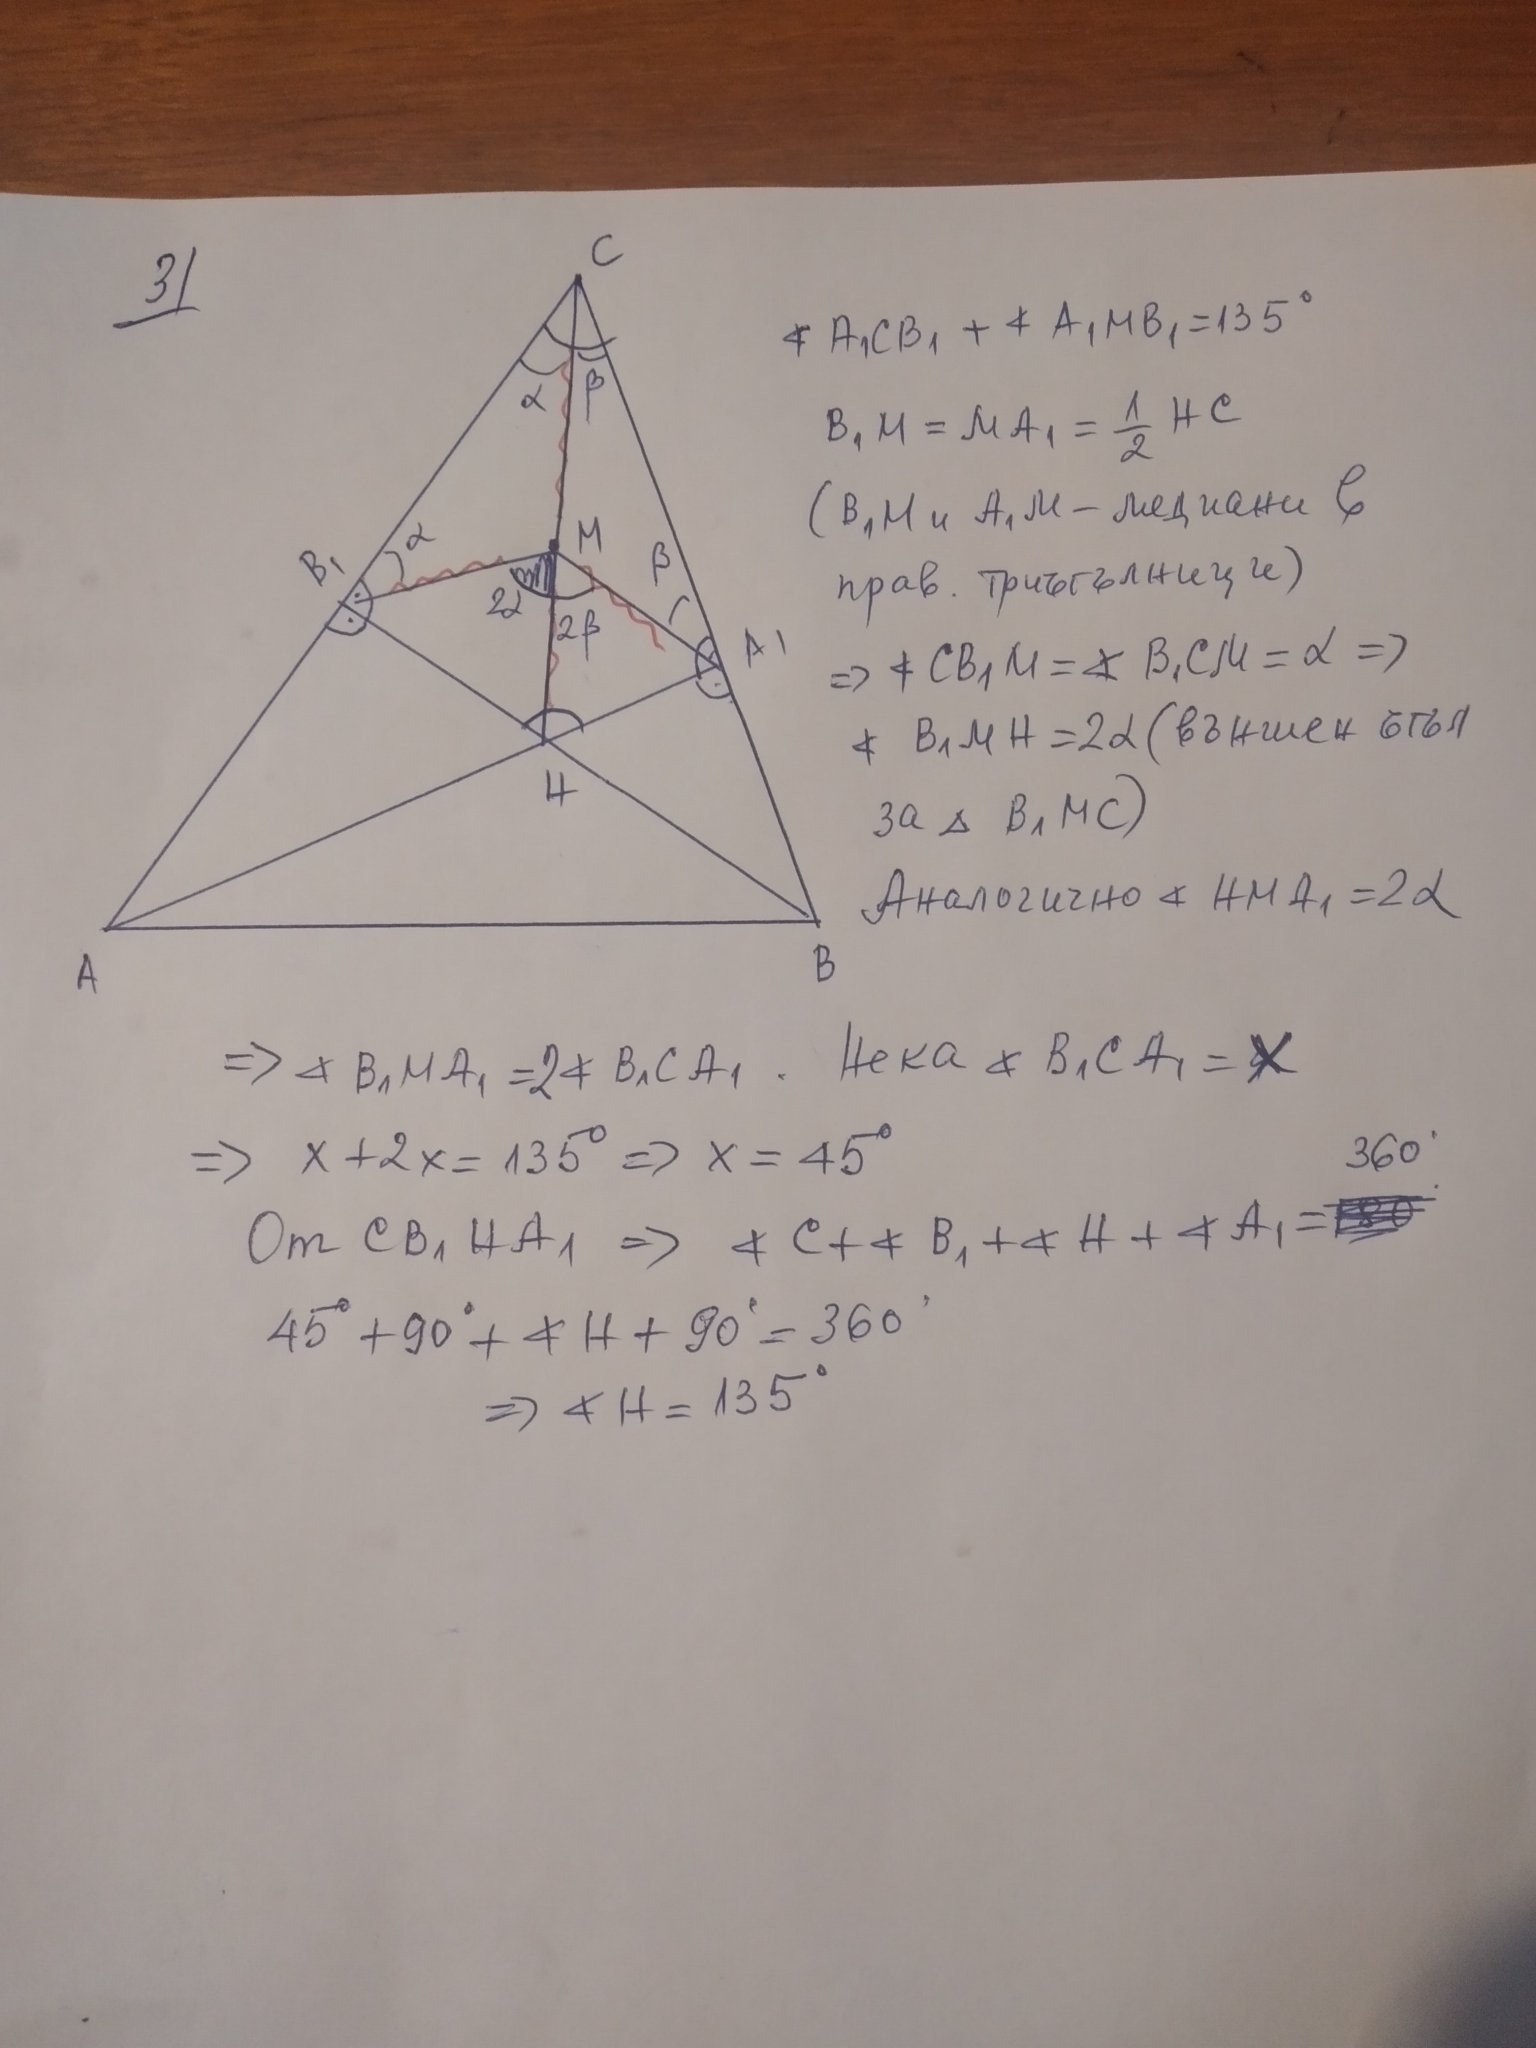 3/
C
α β
B₁ α M β
2α 2β A₁
H
A B
∢ A₁CB₁ + ∢ A₁MB₁ = 135°
B₁M = MA₁ = 1/2 HC
(B₁M и A₁M – медиани в
прав. триъгълници)
=> ∢ CB₁M = ∢ B₁CM = α =>
∢ B₁MH = 2α (външен ъгъл
за △ B₁MC)
Аналогично ∢ HMA₁ = 2α
=> ∢ B₁MA₁ = 2∢ B₁CA₁ . Нека ∢ B₁CA₁ = x
=> x + 2x = 135° => x = 45°
От CB₁HA₁ => ∢ C + ∢ B₁ + ∢ H + ∢ A₁ = 360°
45° + 90° + ∢ H + 90° = 360°
=> ∢ H = 135°